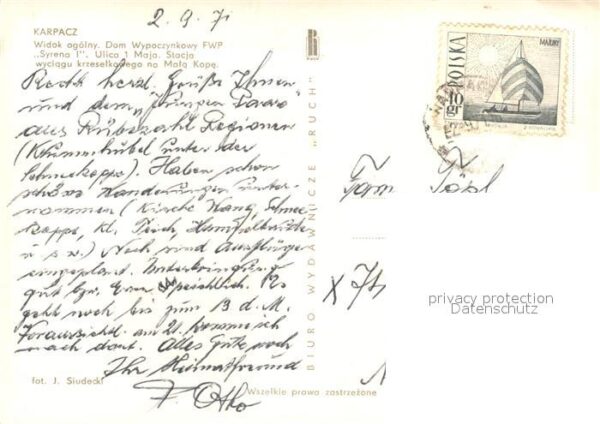 2. 9. 71
KARPACZ
Widok ogólny. Dom Wypoczynkowy FWP
„Syrena I". Ulica 1 Maja. Stacja
wyciągu krzesełkowego na Małą Kopę.
Recht herzl. Grüße Ihnen
und dem „jungen Paare"
aus Rübezahl Regionen
(Krummhübel unter der
Schneekoppe). Haben schon
schöne Wanderungen unter-
nommen (Kirche Wang, Schnee-
koppe, kl. Teich, Hampelbaude
u s w.) Noch sind Ausflüge
eingeplant. Unterbringung
gut bzw. Essen reichlich. Es
geht noch bis zum 13 d. M.
Voraussichtl. am 21. komme ich
nach dort. Alles Gute noch
Ihr Heimatfreund
Otto
fot. J. Siudecki
BIURO WYDAWNICZE „RUCH"
Wszelkie prawa zastrzeżone
POLSKA
10 gr
MAŁY
Fam.
X 71
privacy protection
Datenschutz